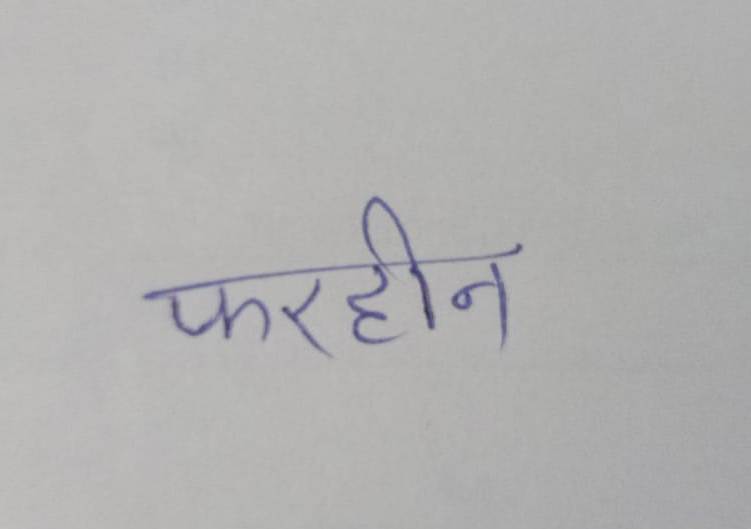 फरहीन